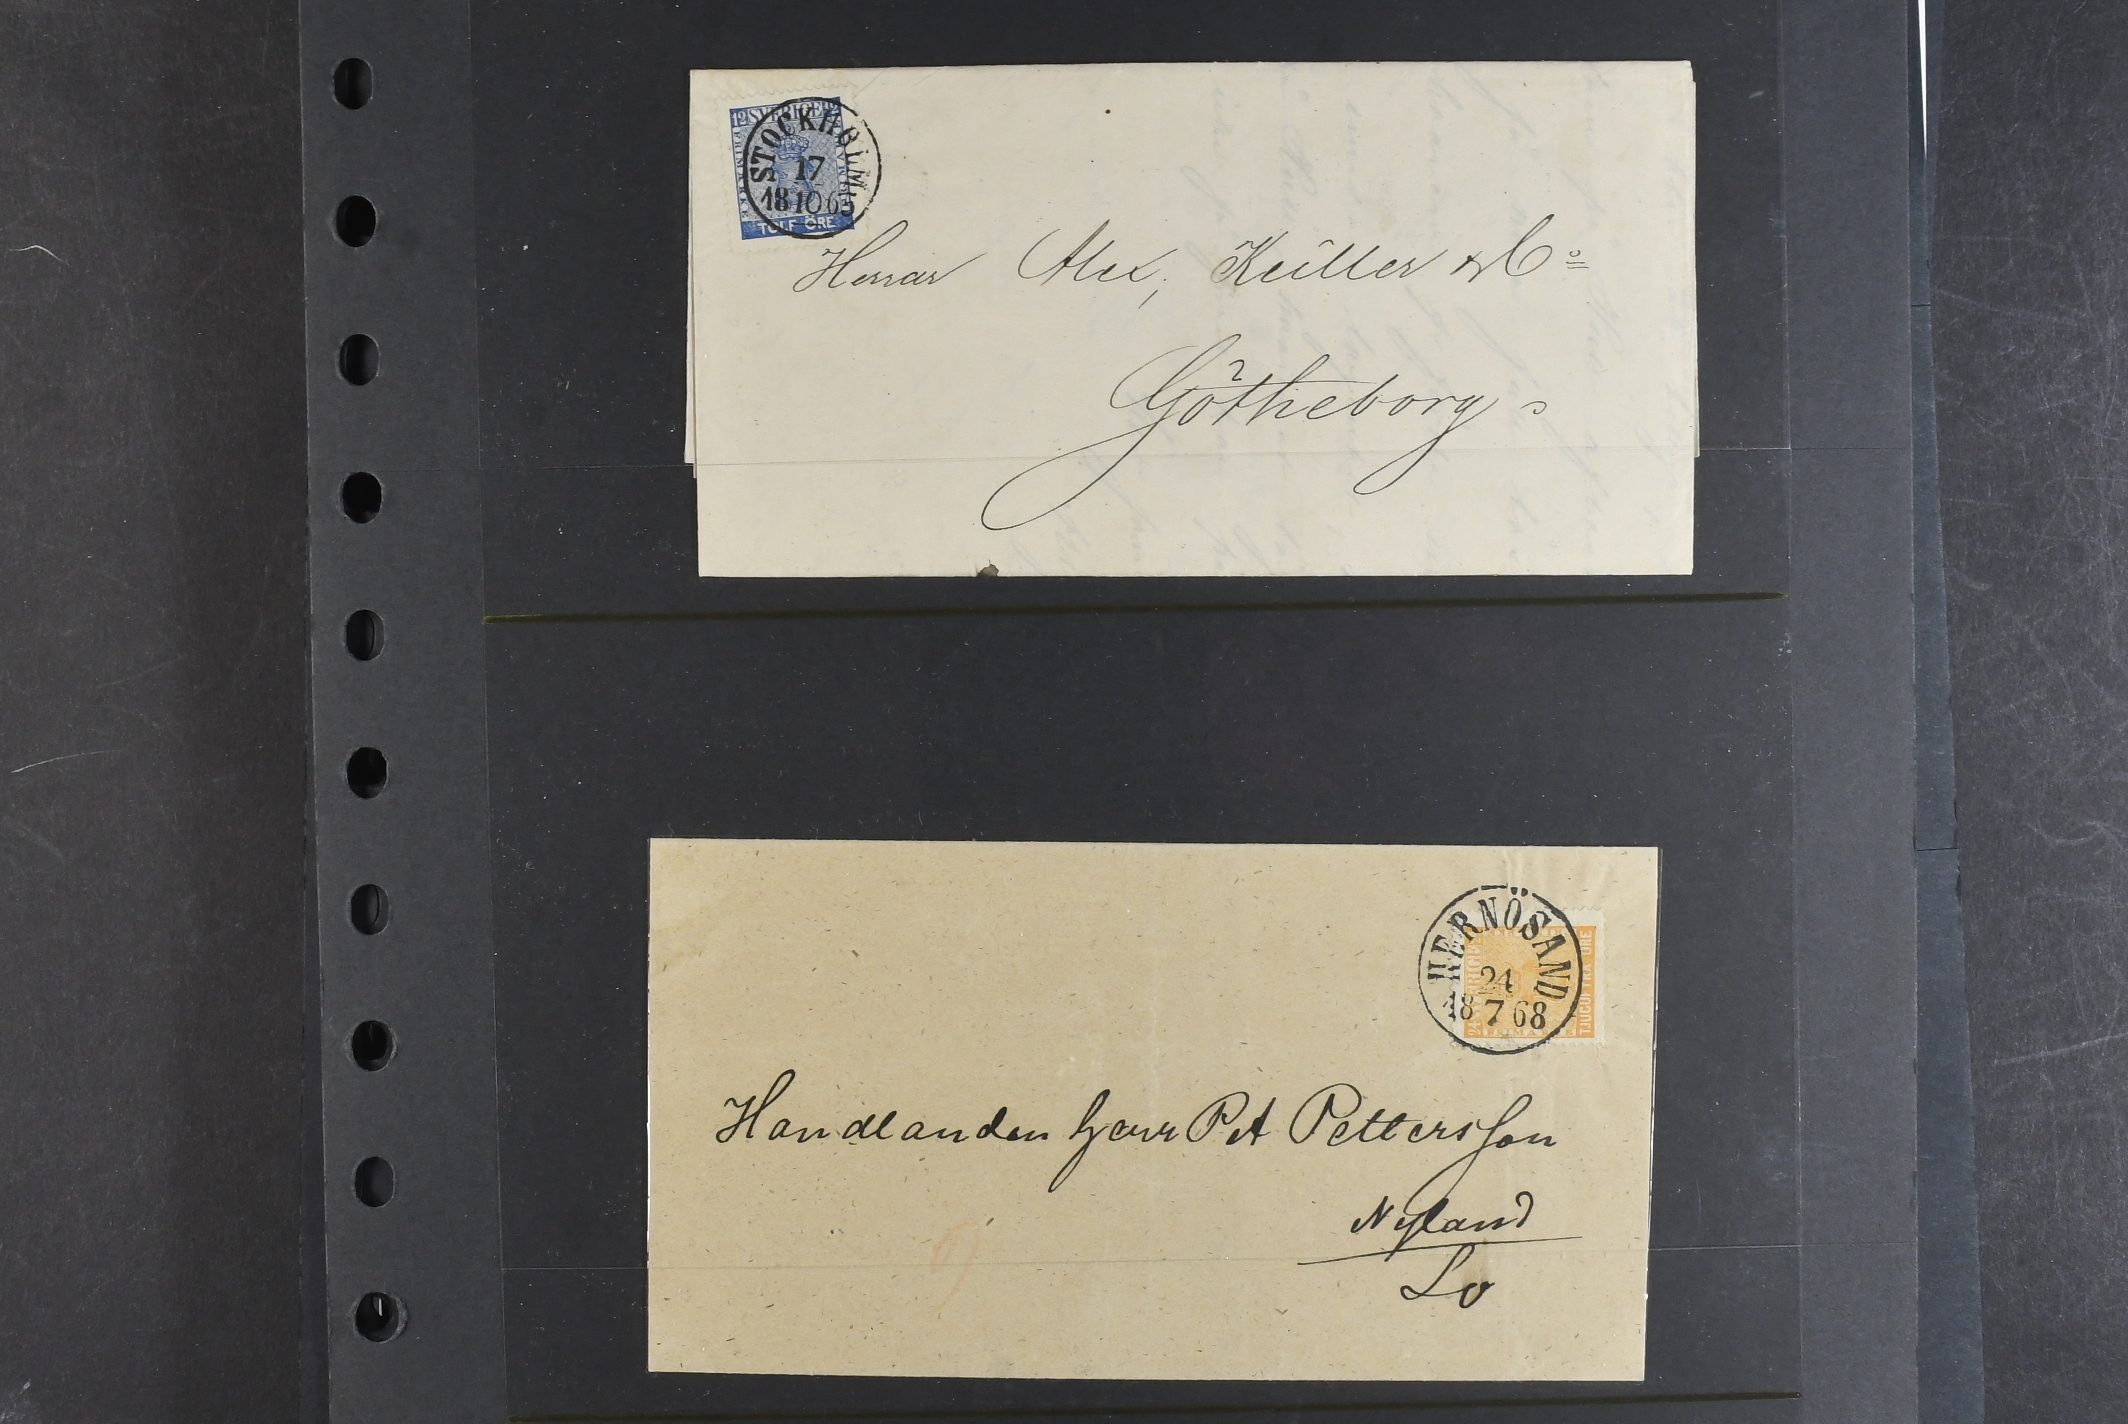 12 SVERIGE 12
FRIMÄRKE
TOLF ÖRE
STOCKHOLM
17
18 10 65
Herrar Alex, Keiller & Co
Götheborg
HERNÖSAND
24
18 7 68
24 SVERIGE
TJUGUFYRA ÖRE
Handlanden Herr P A Pettersson
Nyland
Lo